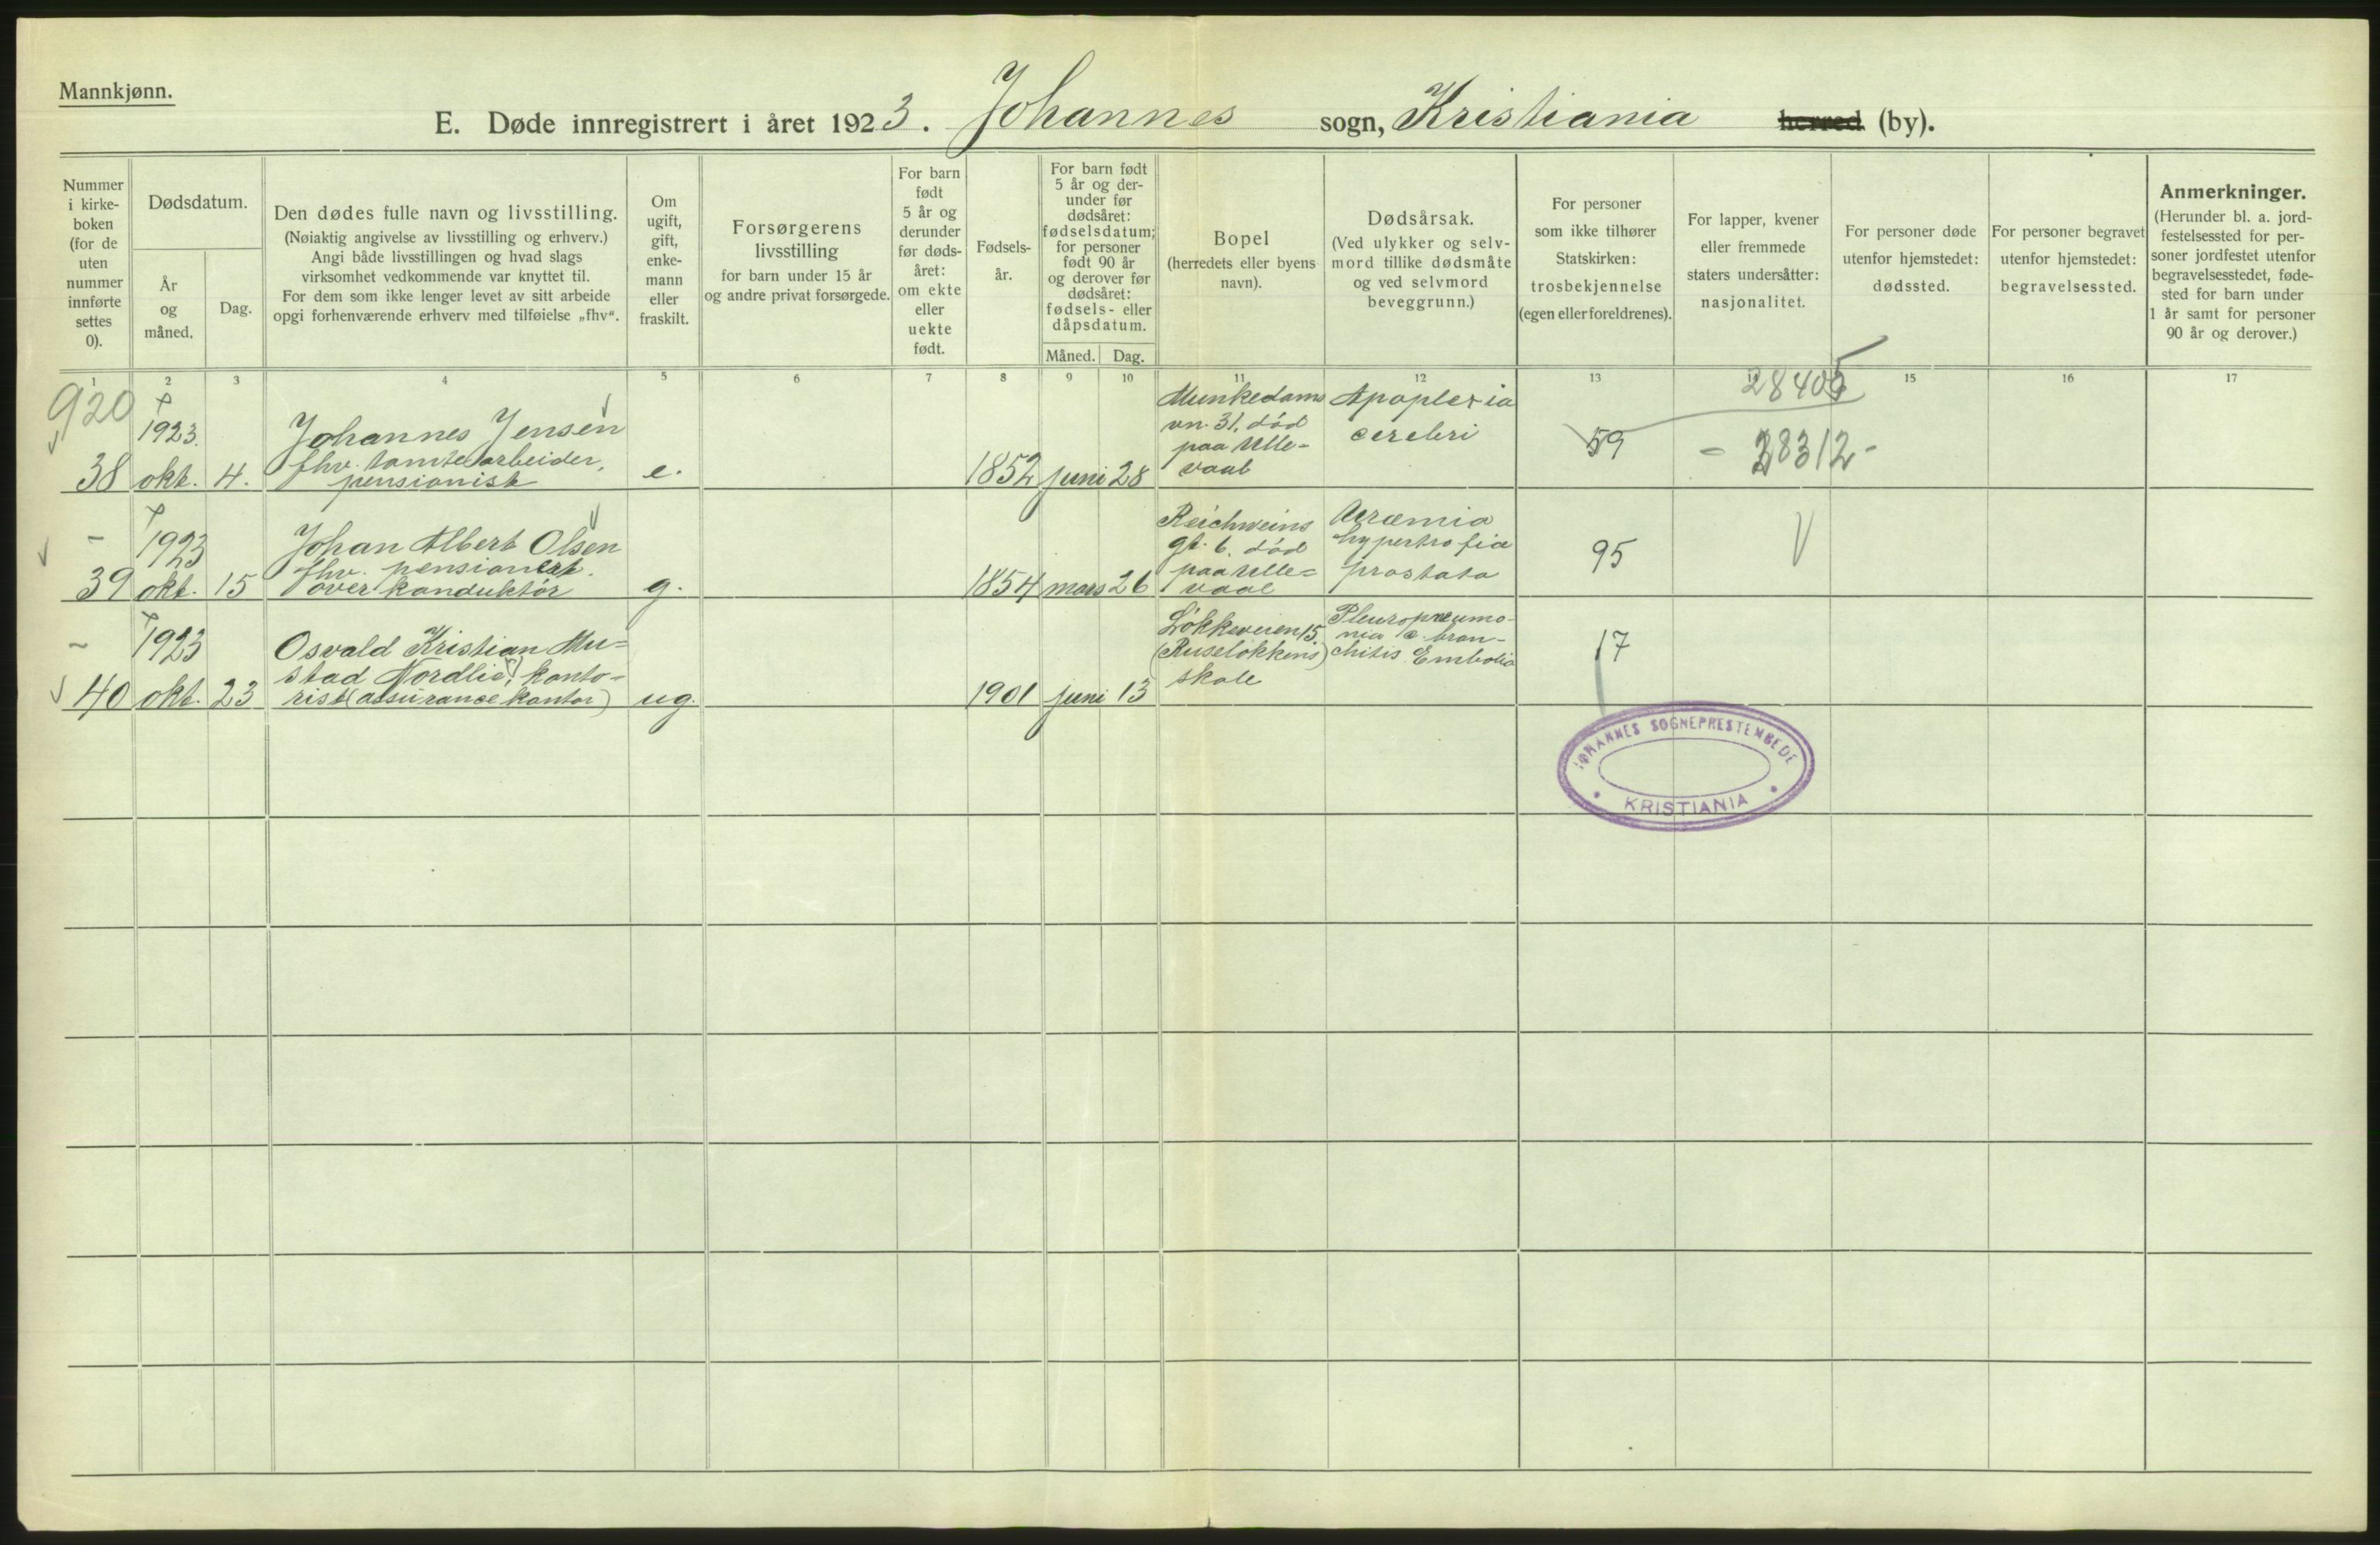 Mannkjønn.
E. Døde innregistrert i året 1923. Johannes sogn, Kristiania herred (by).
Nummer
i kirke-
boken
(for de
uten
nummer
innførte
settes
0).
Dødsdatum.
År
og
måned.
Dag.
Den dødes fulle navn og livsstilling.
(Nøiaktig angivelse av livsstilling og erhverv.)
Angi både livsstillingen og hvad slags
virksomhet vedkommende var knyttet til.
For dem som ikke lenger levet av sitt arbeide
opgi forhenværende erhverv med tilføielse „fhv“.
Om
ugift,
gift,
enke-
mann
eller
fraskilt.
Forsørgerens
livsstilling
for barn under 15 år
og andre privat forsørgede.
For barn
født
5 år og
derunder
før døds-
året:
om ekte
eller
uekte
født.
Fødsels-
år.
For barn født
5 år og der-
under før
dødsåret:
fødselsdatum;
for personer
født 90 år
og derover før
dødsåret:
fødsels- eller
dåpsdatum.
Måned. Dag.
Bopel
(herredets eller byens
navn).
Dødsårsak.
(Ved ulykker og selv-
mord tillike dødsmåte
og ved selvmord
beveggrunn.)
For personer
som ikke tilhører
Statskirken:
trosbekjennelse
(egen eller foreldrenes).
For lapper, kvener
eller fremmede
staters undersåtter:
nasjonalitet.
For personer døde
utenfor hjemstedet:
dødssted.
For personer begravet
utenfor hjemstedet:
begravelsessted.
Anmerkninger.
(Herunder bl. a. jord-
festelsessted for per-
soner jordfestet utenfor
begravelsesstedet, føde-
sted for barn under
1 år samt for personer
90 år og derover.)
1 2 3 4 5 6 7 8 9 10 11 12 13 15 16 17
920
38
1923.
okt. 4.
Johannes Jensen
fhv. tomtearbeider,
pensionist
e.
1852 juni 28
Munkedams
vn. 31. död
paa Ulle-
vaal
Apoplexia
cerebri
59
28405
- 28312 -
-
39
1923
okt. 15
Johan Albert Olsen
fhv. pensionert
overkonduktör
g.
1854 mars 26
Reichweins
gt. 6. död
paa Ulle=
vaal
Uræmia
hypertrofia
prostata
95
-
40
1923
okt. 23
Osvald Kristian Mu=
stad Nordlie, konto=
rist (assurance kontor)
ug.
1901 juni 13
Lökkeveien 15.
(Ruselökkens)
skole
Pleuropneumo-
nia c. bron-
chitis Embolia
17
JOHANNES SOGNEPRESTEMBEDE
KRISTIANIA